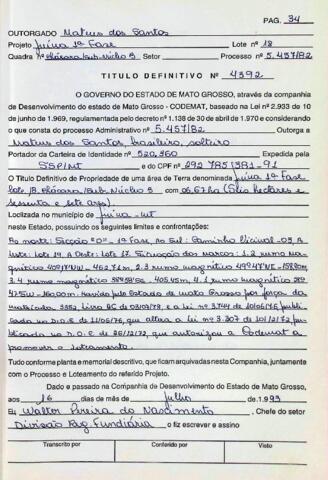 PÁG. 34
OUTORGADO Mateus dos Santos
Projeto Juína 1ª Fase Lote nº 18
Quadra nº Chácara/Sub.Núcleo B Setor Processo nº 5.457/82
TITULO DEFINITIVO Nº 4392
O GOVERNO DO ESTADO DE MATO GROSSO, através da companhia
de Desenvolvimento do estado de Mato Grosso - CODEMAT, baseado na Lei nº 2.933 de 10
de junho de 1969, regulamentada pelo decreto nº 1.138 de 30 de abril de 1970 e considerando
o que consta do processo Administrativo nº 5.457/82 Outorga a
Mateus dos Santos, brasileiro, solteiro
Portador da Carteira de Identidade nº 520.360 Expedida pela
SSP/MT e do CPF nº 292.785.1381-91
O Titulo Definitivo de Propriedade de uma área de Terra denominada Juína 1ª Fase
lote 18 Chácara/Sub.Núcleo B com 06,67ha (Seis Hectares e
sessenta e sete ares).
Localizada no município de Juína-MT
neste Estado, possuindo os seguintes limites e confrontações:
Ao norte: Secção "D" 1ª Fase, ao Sul: Caminho Vicinal-03, A
Leste: Lote 19, A Oeste: Lote 17. Situação dos marcos: 1.2 rumo ma
gnético 2.3
rumo magnético
3.4 rumo magnético 405,45m, 4.1 rumo magnético
160,00m. Havido pelo Estado de Mato Grosso por força da
matrícula 3352, Livro 2C de 03/07/78, e a lei nº 3.744 de 10/06/76 publi
cada no D.O.E de 11/06/76, que altera a lei nº 3.307 de 10/12/72 pu
blicado no D.O.E de 26/12/72, que autorizou a Codemat a
promover o loteamento.
Tudo conforme planta e memorial descritivo, que ficam arquivadas nesta Companhia, juntamente
com o Processo e Loteamento do referido Projeto.
Dado e passado na Companhia de Desenvolvimento do Estado de Mato Grosso,
aos 16 dias de mês de julho de 1.999
Eu Walter Pereira do Nascimento, Chefe do setor
Divisão Reg. Fundiária o fiz escrever e assino
Transcrito por Conferido por Visto